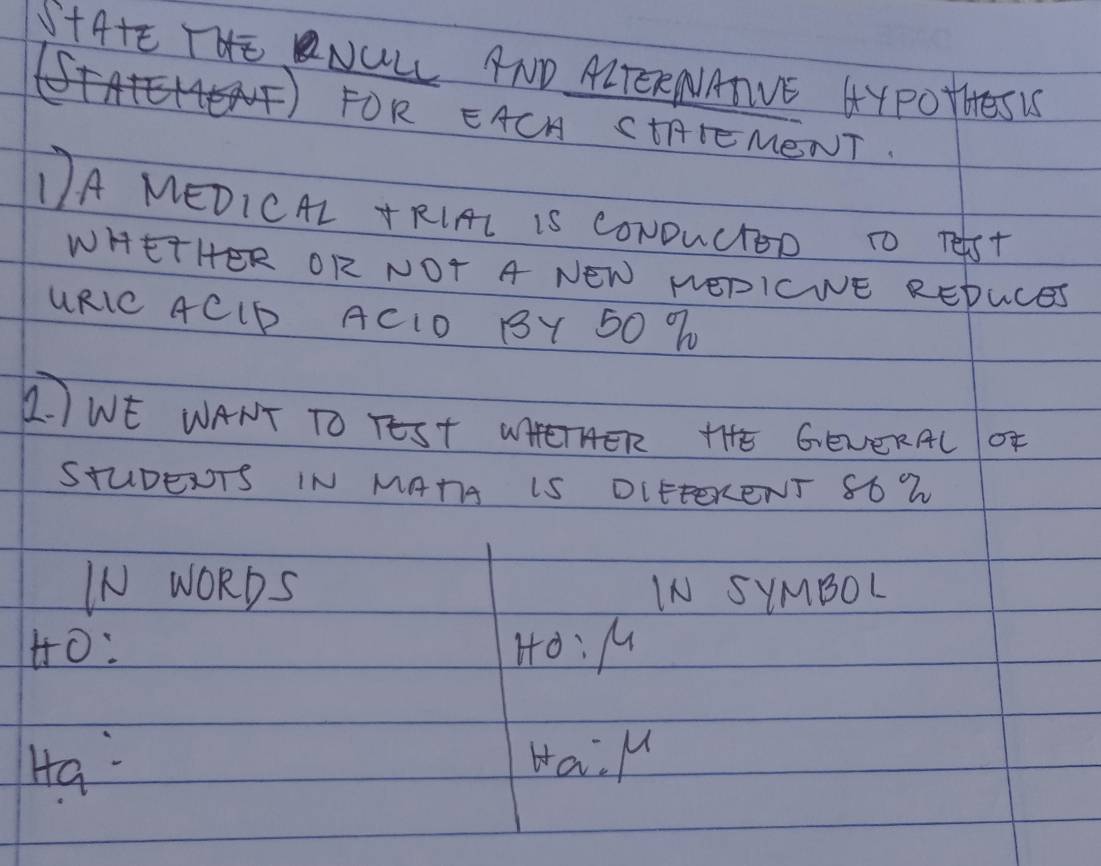 STATE THE NULL AND ALTERNATIVE HYPOTHESIS
(STATEMENT) FOR EACH STATEMENT.
1) A MEDICAL TRIAL IS CONDUCTED TO TEST
WHETHER OR NOT A NEW MEDICINE REDUCES
URIC ACID ACID BY 50%
2.) WE WANT TO TEST WHETHER THE GENERAL OF
STUDENTS IN MATH IS DIFFERENT 80%
IN WORDS IN SYMBOL
HO: HO: μ
Ha: Ha: μ